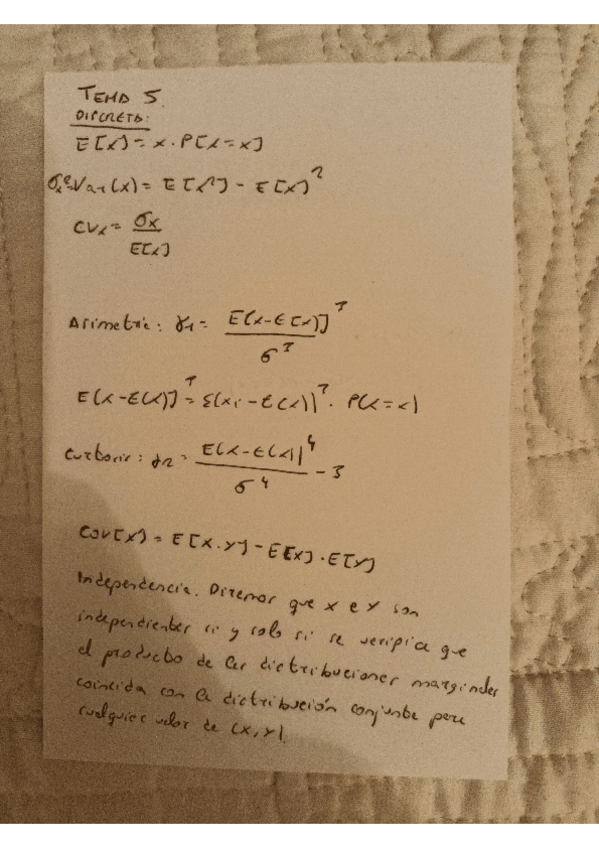 TEMA 5.
DISCRETA:
E[X] = x · P[X = x]
σx² = Var(x) = E[X²] - E[X]²
CVx = σx / E[X]
Asimetría: γ1 = E[X - E[X]]³ / σ³
E[X - E(X)]³ = Σ(xi - E(X))³ · P(X = x)
Curtosis: γ2 = E(X - E(X))⁴ / σ⁴ - 3
COV[X] = E[X·Y] - E[X] · E[Y]
Independencia. Diremos que X e Y son
independientes si y solo si se verifica que
el producto de las distribuciones marginales
coincida con la distribución conjunta para
cualquier valor de (X, Y).